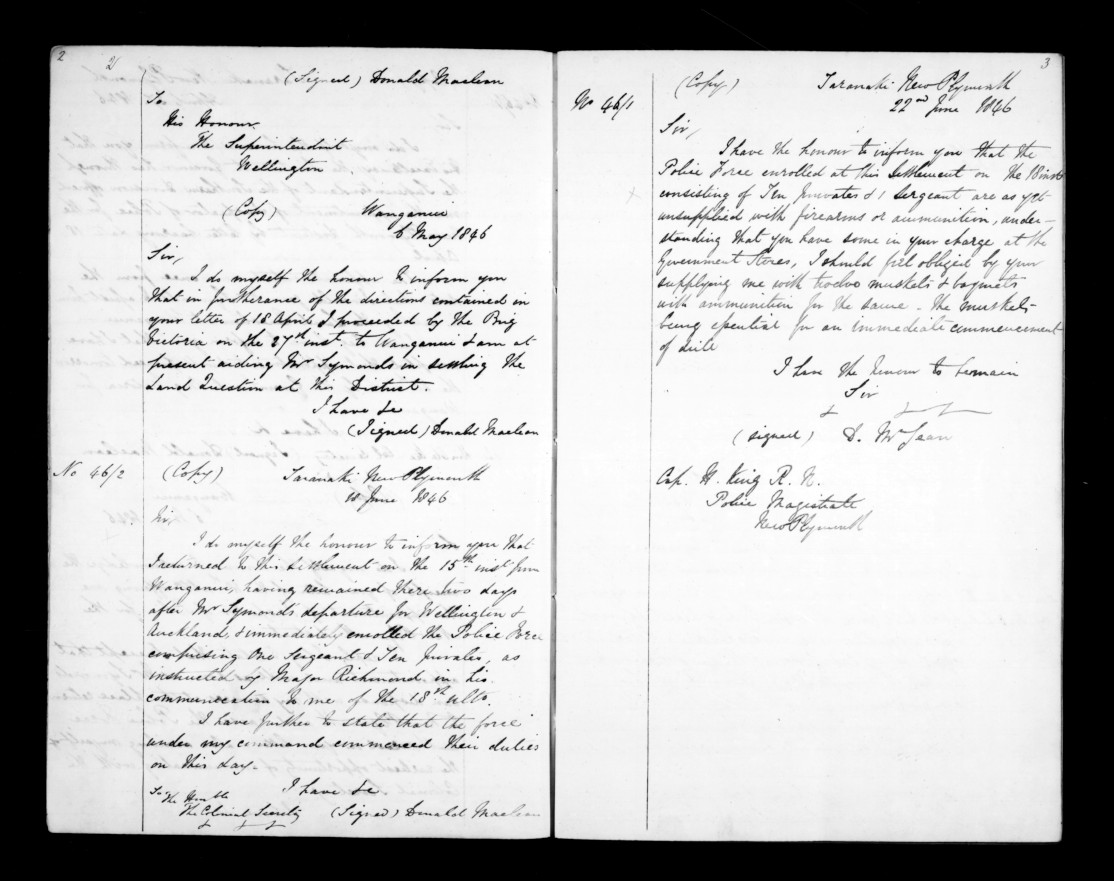 2
2
(Signed) Donald Maclean
To
His Honour
The Superintendent
Wellington
(Copy) Wanganui
6 May 1846
Sir,
I do myself the honour to inform you
that in furtherance of the directions contained in
your letter of 18 April I proceeded by the Brig
Victoria on the 27th inst. to Wanganui & am at
present aiding Mr Symonds in settling the
Land Question at this District.
I have &c
(Signed) Donald Maclean
No 46/2 (Copy) Taranaki New Plymouth
18 June 1846
Sir,
I do myself the honour to inform you that
I returned to this Settlement on the 15th inst from
Wanganui, having remained there two days
after Mr Symonds departure for Wellington &
Auckland, & immediately enrolled the Police Force
comprising One Sergeant & Ten privates, as
instructed by Major Richmond in his
communication to me of the 18th ulto.
I have further to state that the force
under my command commenced their duties
on this day.
I have &c.
To The Honble
The Colonial Secretary (Signed) Donald Maclean
3
No 46/1 (Copy) Taranaki New Plymouth
22nd June 1846
Sir,
I have the honour to inform you that the
Police Force enrolled at this Settlement on the 18 inst
consisting of Ten privates & 1 Sergeant are as yet
unsupplied with firearms or ammunition, under-
standing that you have some in your charge at the
Government Stores, I should feel obliged by your
supplying me with twelve muskets & bayonets
with ammunition for the same - the muskets
being essential for an immediate commencement
of drill
I have the honour to remain
Sir
(signed) D. McLean
Cap. H. King R. N.
Police Magistrate
New Plymouth